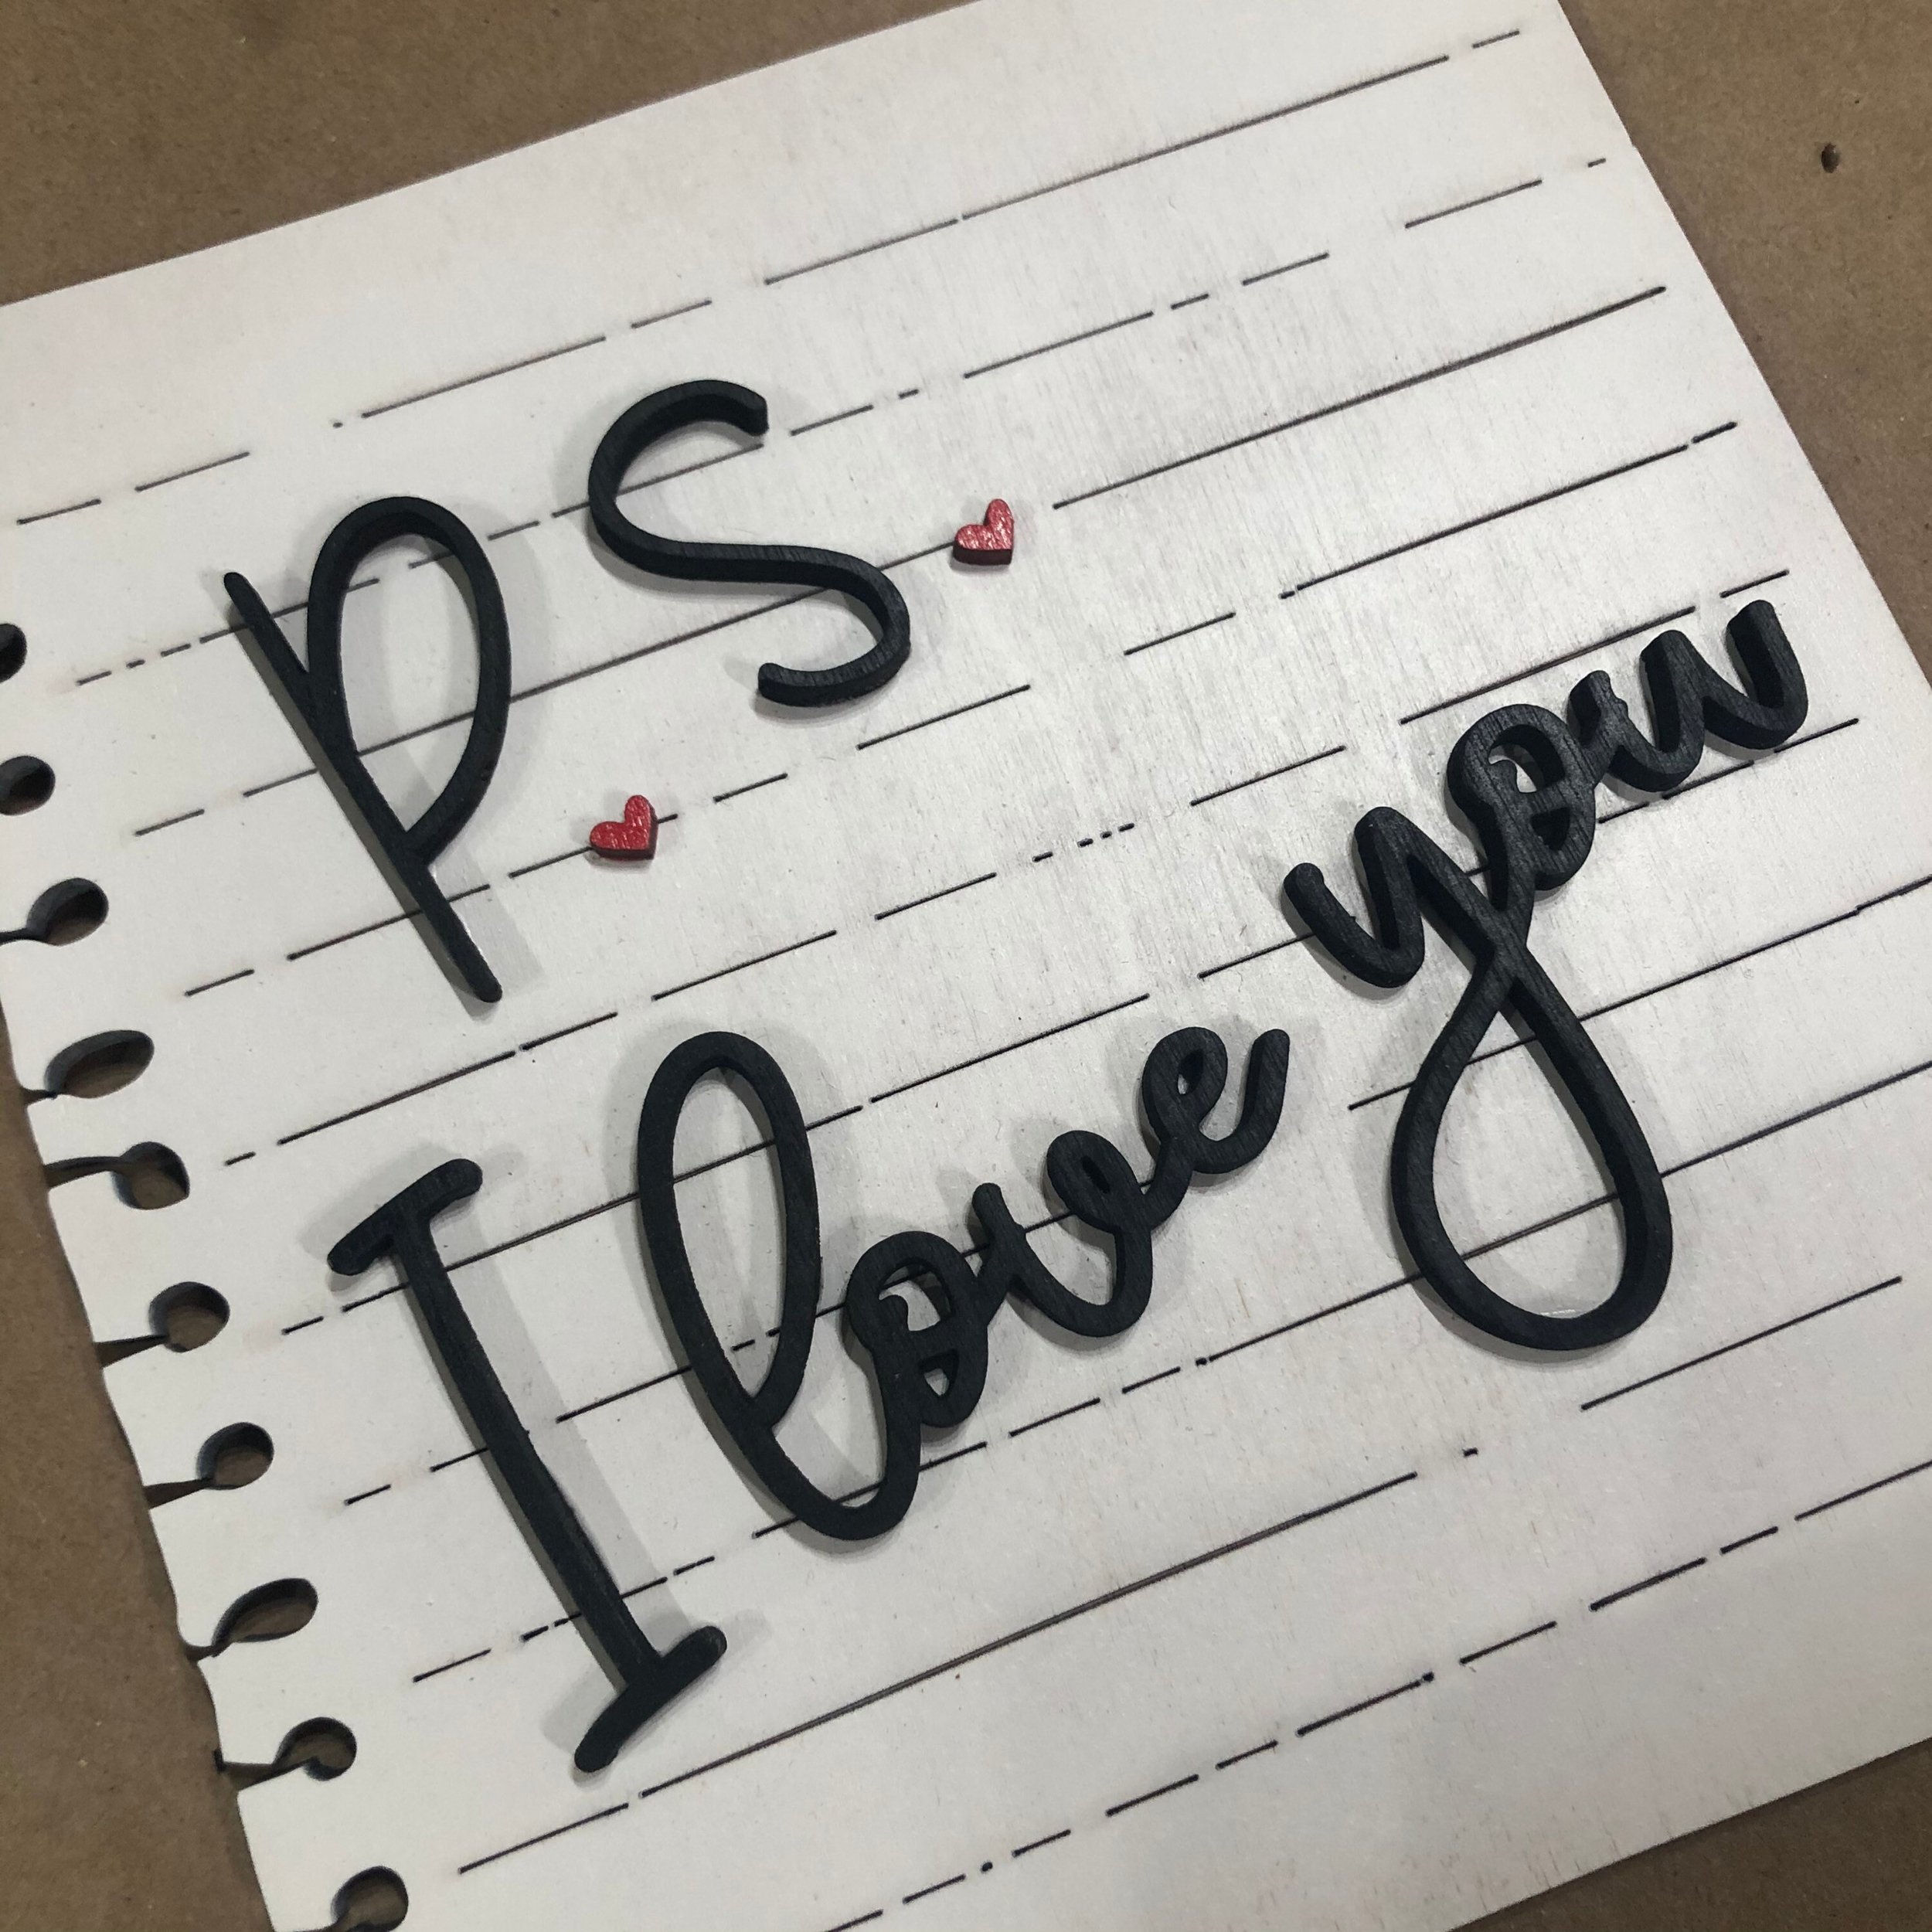 P♥S♥
I love you